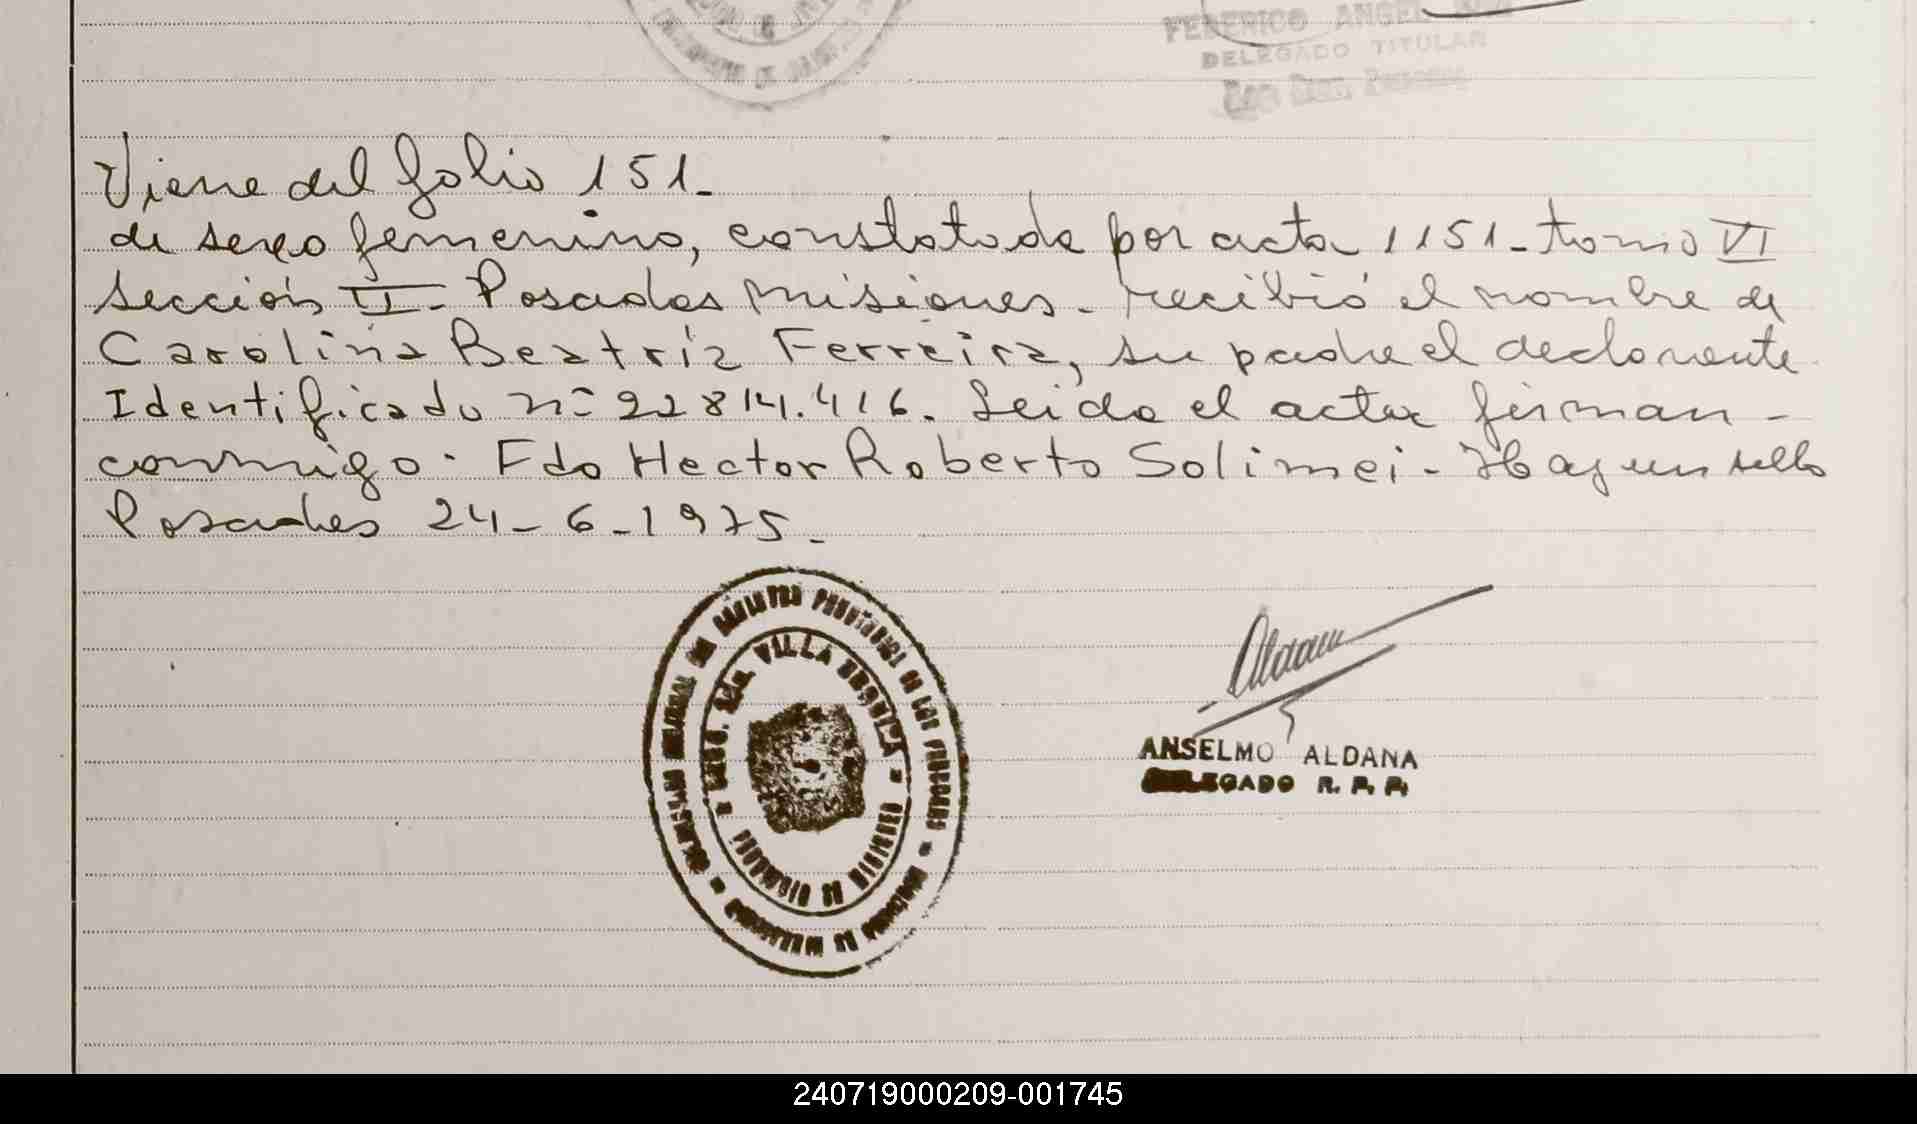 FEDERICO ANGEL
DELEGADO TITULAR
Viene del folio 151.
de sexo femenino, constatada por acta 1151 - tomo VI
sección II - Posadas Misiones. recibió el nombre de
Carolina Beatríz Ferreira, su padre el declarante
Identificado nº 22814.416. Leida el acta firman -
conmigo. Fdo Hector Roberto Solimei - Hay un sello
Posadas 24-6-1975.
VILLA URQUIZA
Aldana
ANSELMO ALDANA
DELEGADO R. P. P.
240719000209-001745